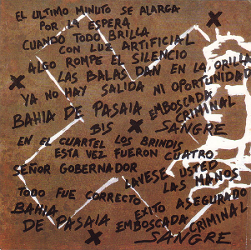 EL ULTIMO MINUTO SE ALARGA
POR LA ESPERA
CUANDO TODO BRILLA
CON LUZ ARTIFICIAL
ALGO ROMPE EL SILENCIO
LAS BALAS DAN EN LA ORILLA
YA NO HAY SALIDA MI OPORTUNIDAD
BAHIA DE PASAIA EMBOSCADA
CRIMINAL
BIS SANGRE
EN EL CUARTEL LOS BRINDIS
ESTA VEZ FUERON CUATRO
SEÑOR GOBERNADOR
LAVESE USTED
LAS MANOS
TODO FUE CORRECTO
EXITO ASEGURADO
BAHIA
DE PASAIA EMBOSCADA CRIMINAL
SANGRE